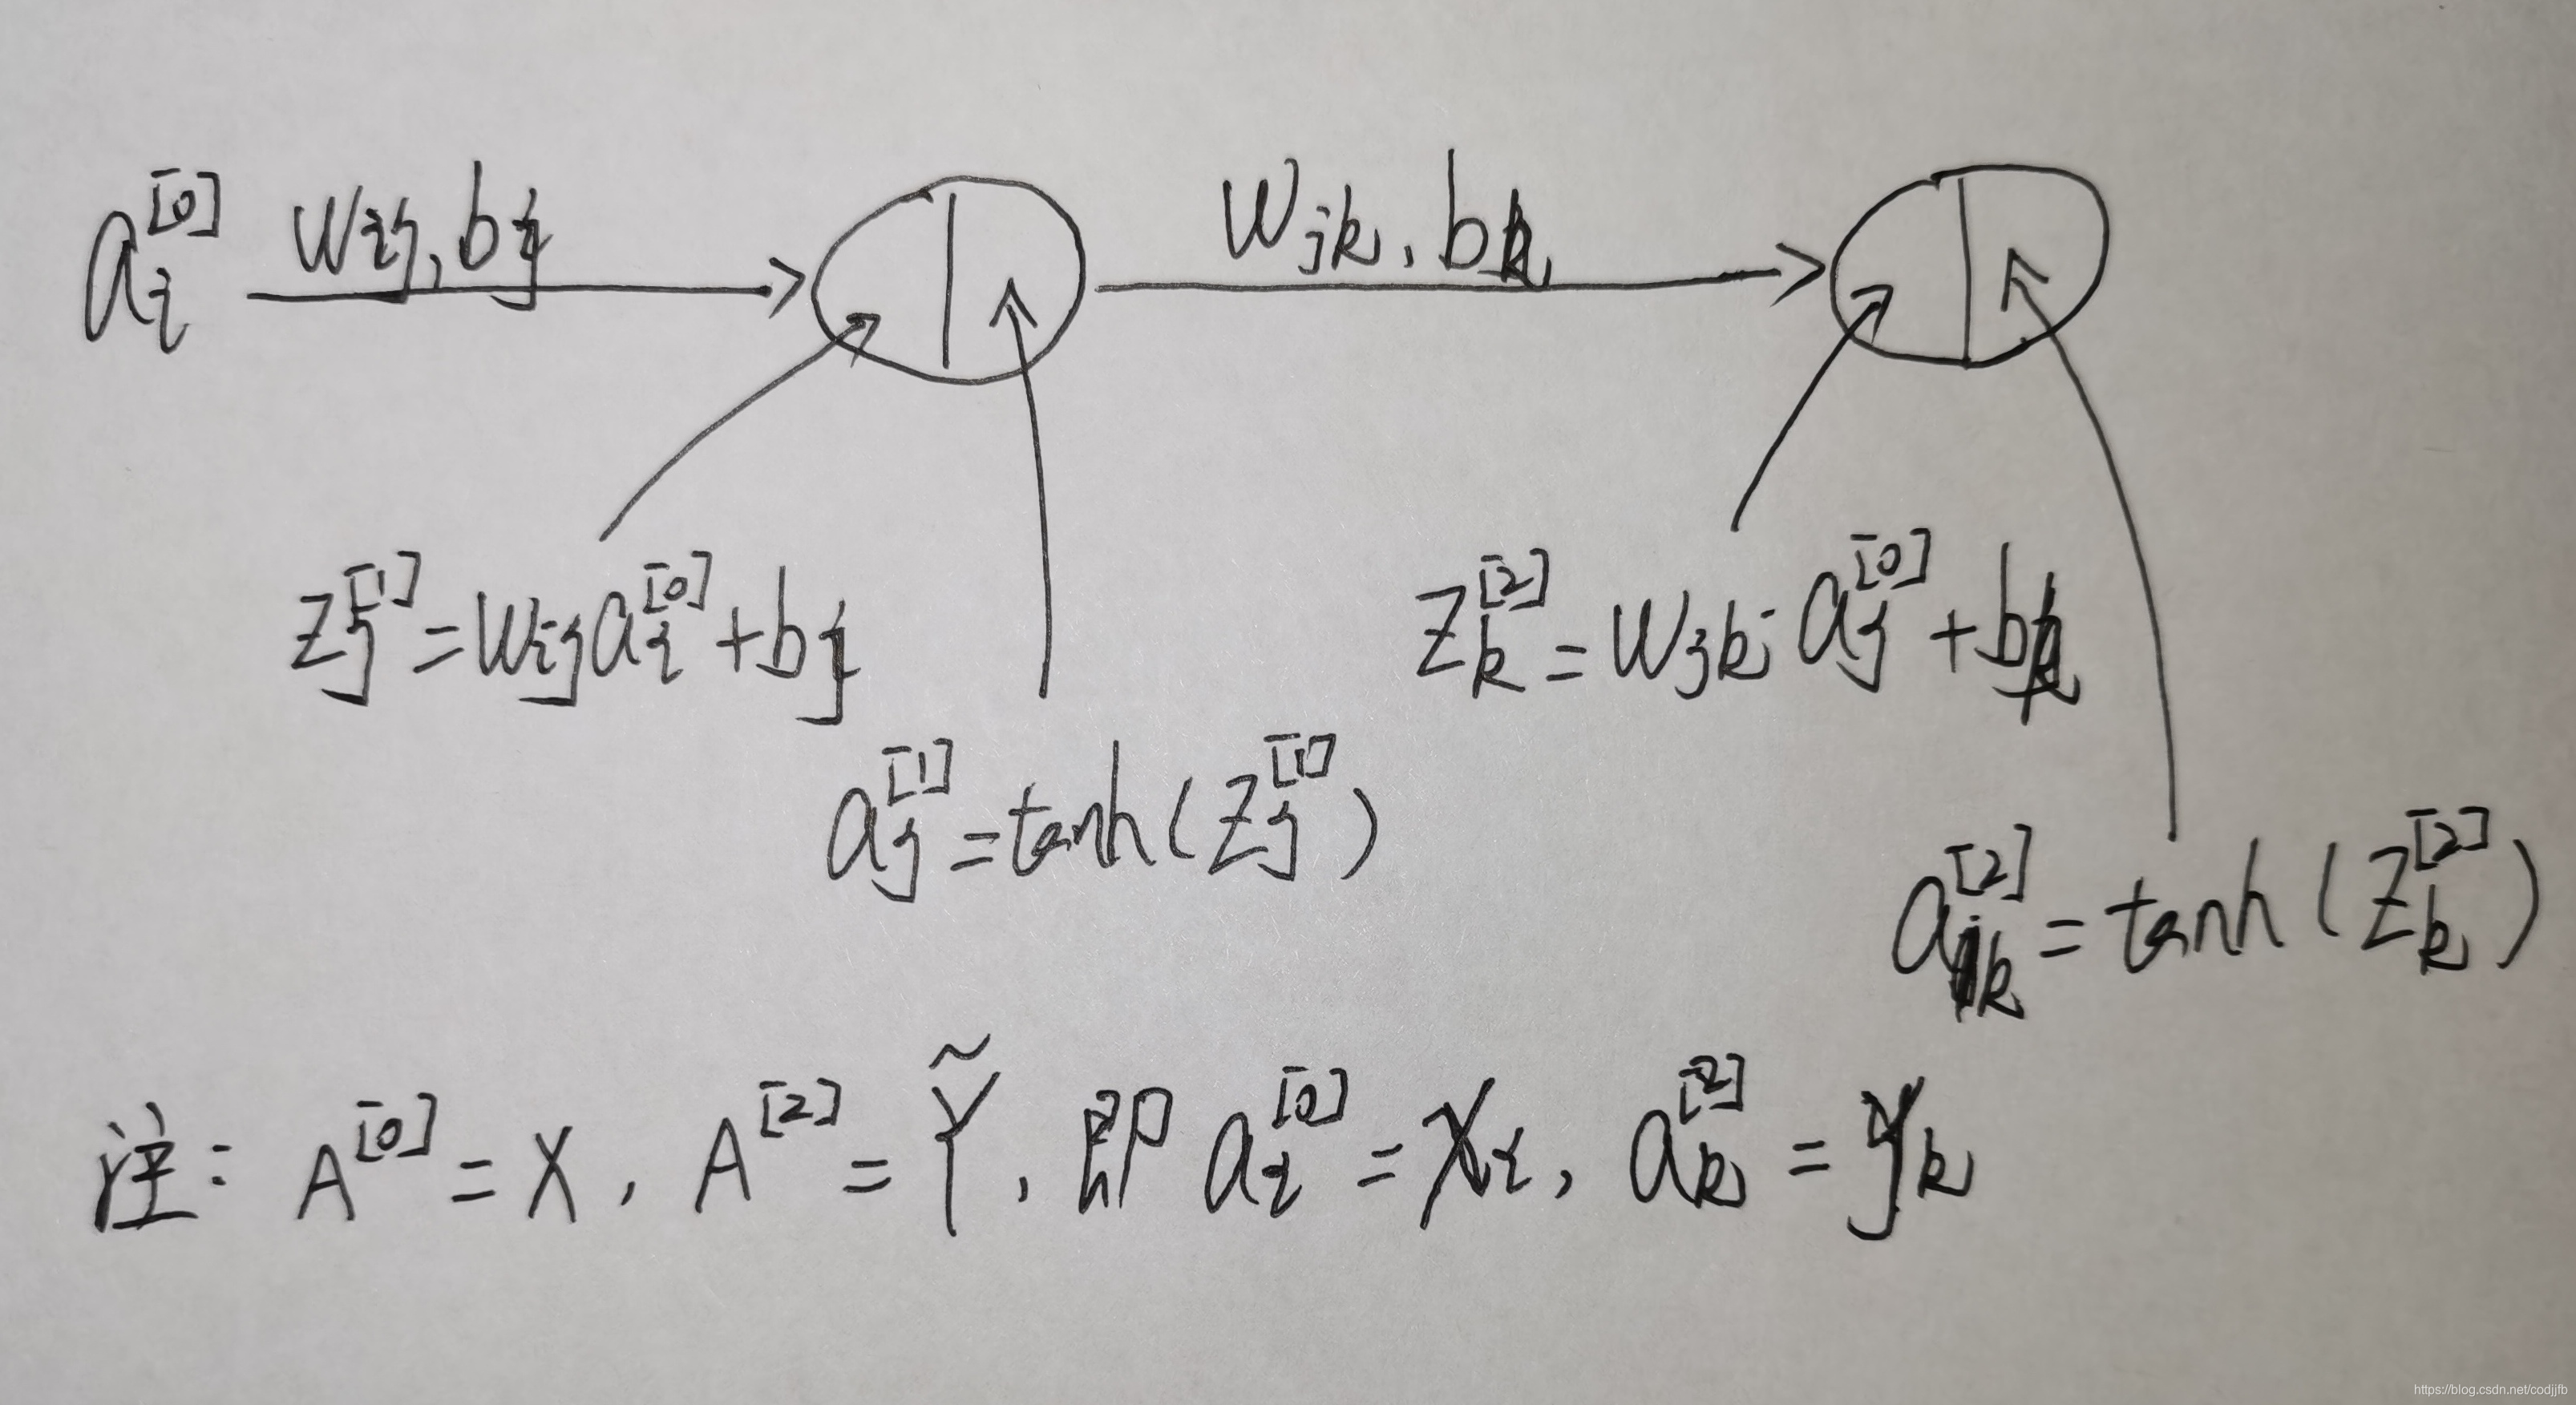 a_i^{[0]} w_{ij}, b_j w_{jk}, b_k
z_j^{[1]} = w_{ij} a_i^{[0]} + b_j
z_k^{[2]} = w_{jk} a_j^{[0]} + b_k
a_j^{[1]} = tanh(z_j^{[1]})
a_k^{[2]} = tanh(z_k^{[2]})
注: A^{[0]} = X, A^{[2]} = Ỹ, 即 a_i^{[0]} = x_i, a_k^{[2]} = y_k
https://blog.csdn.net/codjjfb